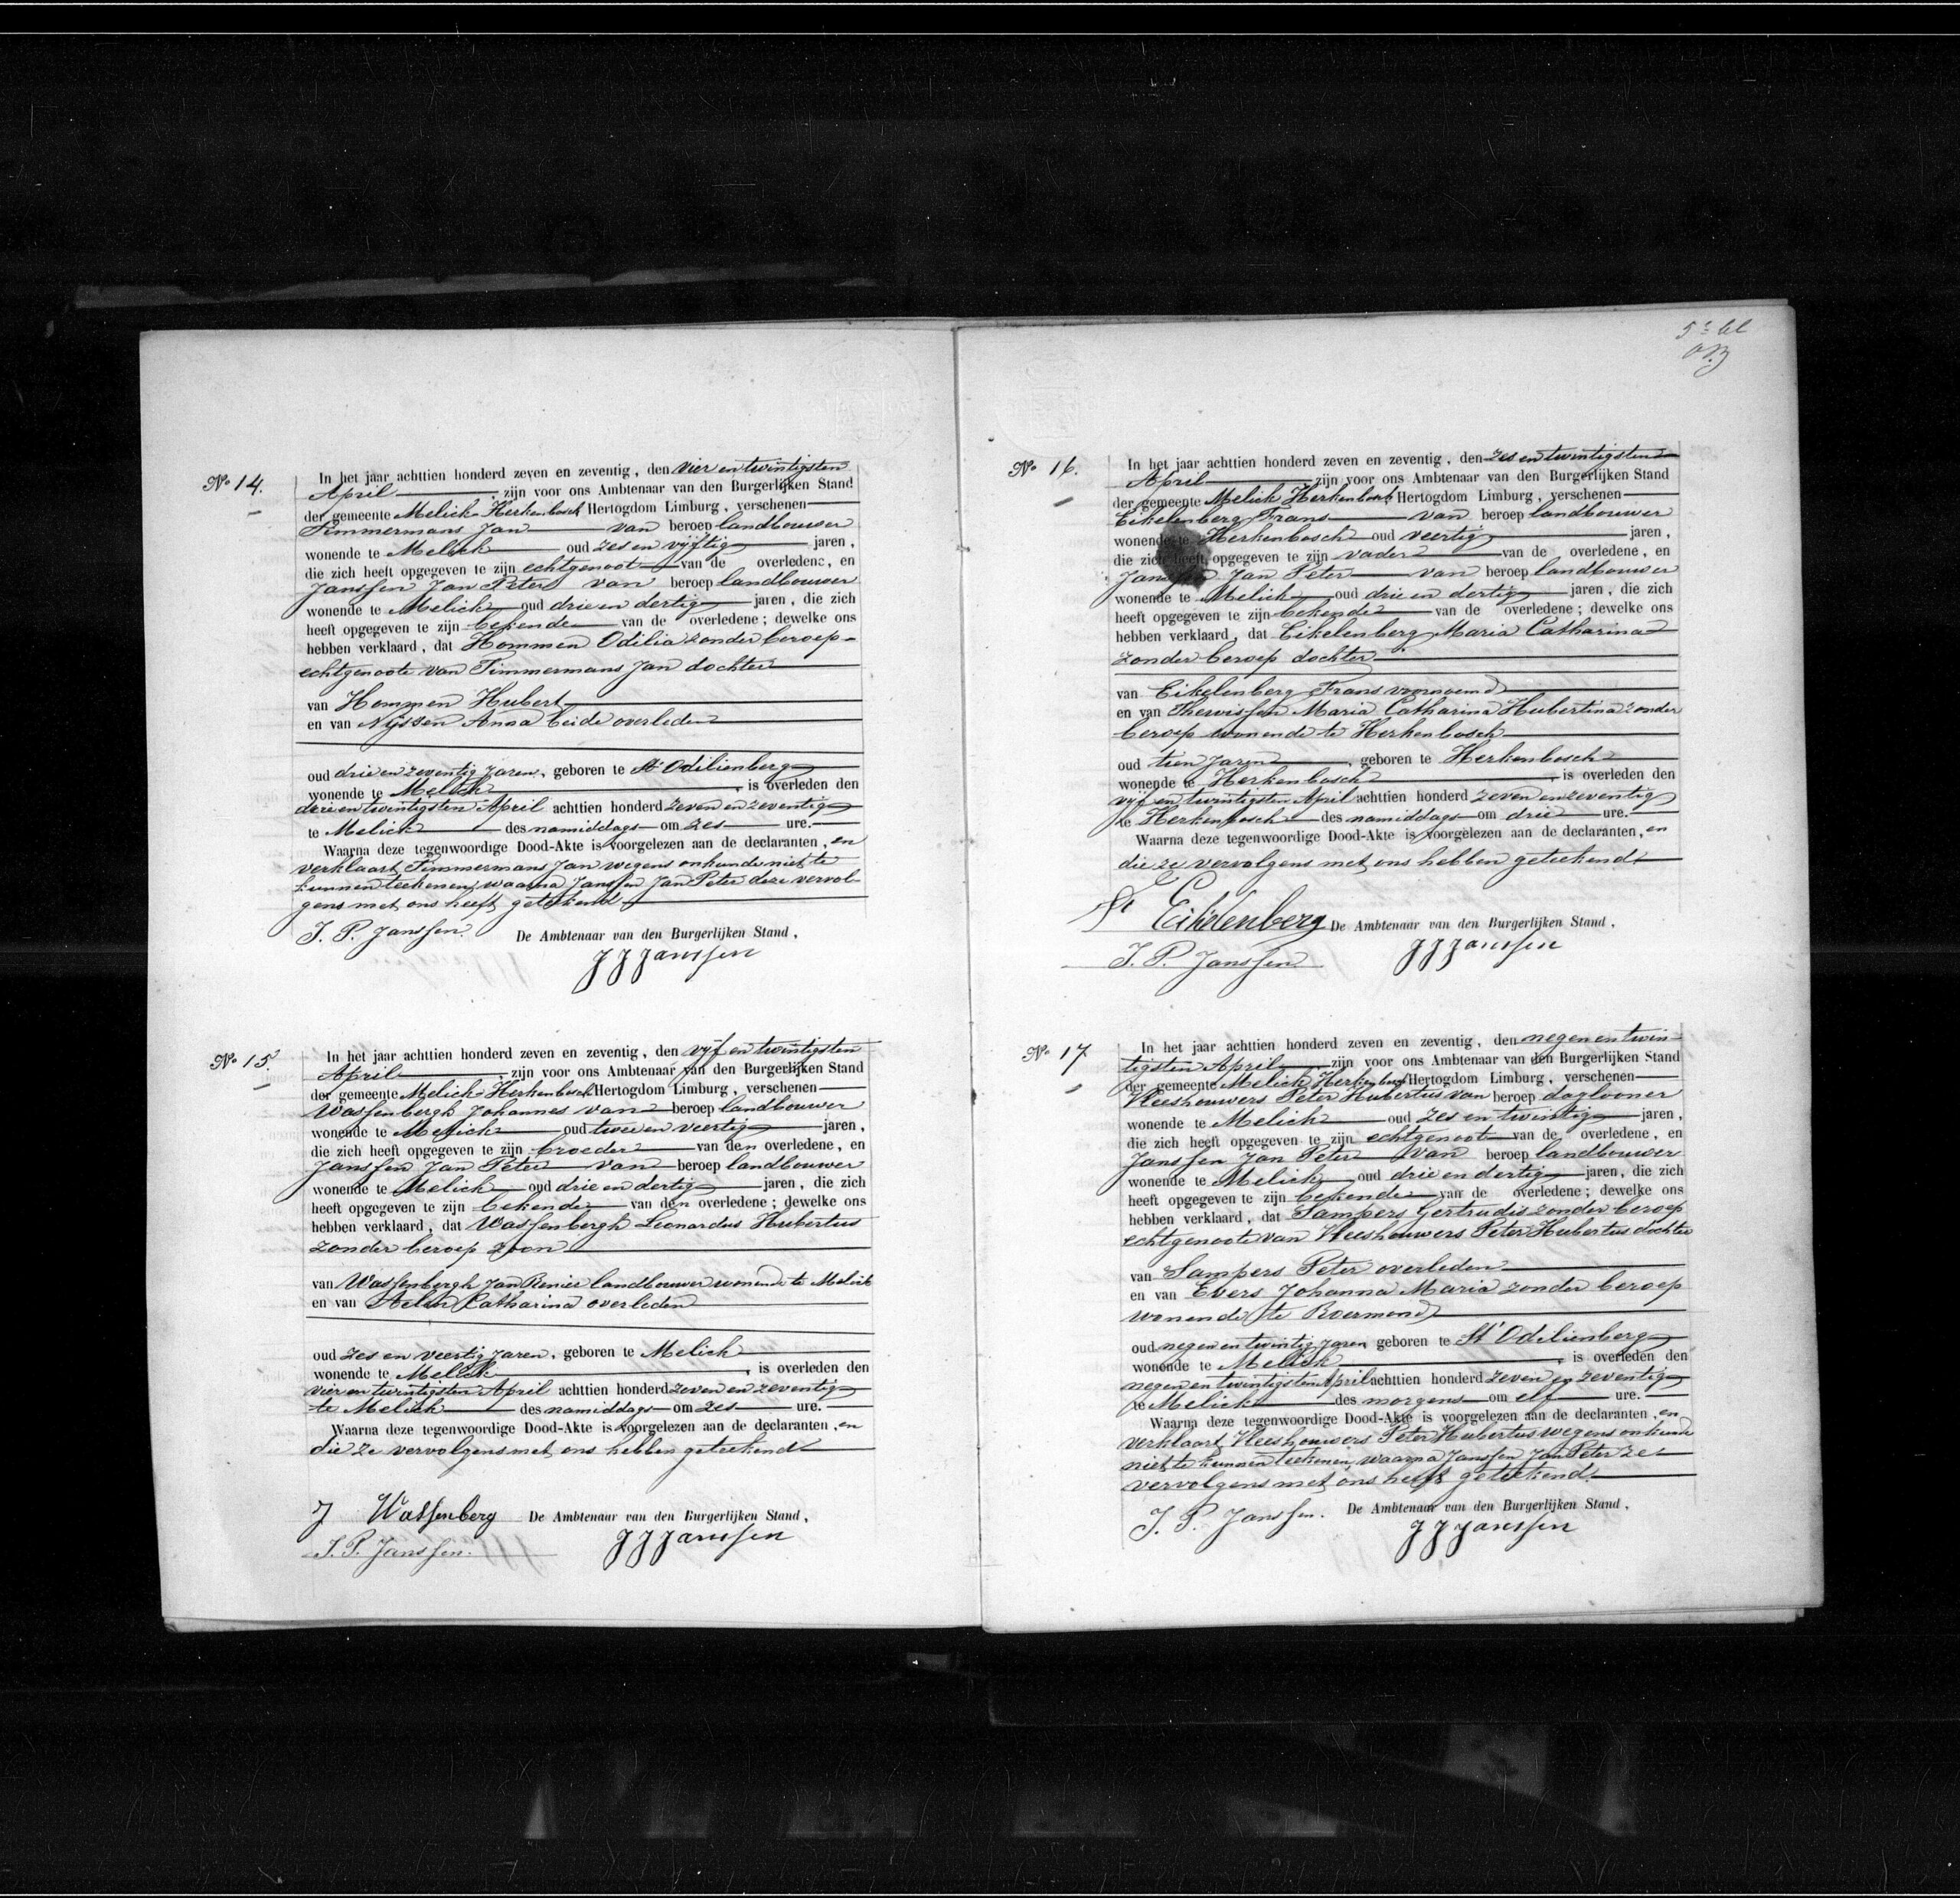 No 14.
In het jaar achttien honderd zeven en zeventig, den vier en twintigsten
April, zijn voor ons Ambtenaar van den Burgerlijken Stand
der gemeente Melick Herkenbosch Hertogdom Limburg, verschenen
Timmermans Jan van beroep landbouwer
wonende te Melick oud zes en vijftig jaren,
die zich heeft opgegeven te zijn echtgenoot van de overledene, en
Janssen Jan Peter van beroep landbouwer
wonende te Melick oud drie en dertig jaren, die zich
heeft opgegeven te zijn bekende van de overledene; dewelke ons
hebben verklaard, dat Hommen Odilia zonder beroep
echtgenoote van Timmermans Jan dochter
van Hommen Hubert
en van Nijssen Anna beide overleden
oud drie en zeventig jaren, geboren te St Odilienberg
wonende te Melick, is overleden den
drie en twintigsten April achttien honderd zeven en zeventig
te Melick des namiddags om zes ure.
Waarna deze tegenwoordige Dood-Akte is voorgelezen aan de declaranten, en
verklaart Timmermans Jan wegens onkunde niet te
kunnen teekenen, waarna Janssen Jan Peter deze vervol-
gens met ons heeft geteekend
J. P. Janssen. De Ambtenaar van den Burgerlijken Stand,
J J Janssen
No 15.
In het jaar achttien honderd zeven en zeventig, den vijf en twintigsten
April, zijn voor ons Ambtenaar van den Burgerlijken Stand
der gemeente Melick Herkenbosch Hertogdom Limburg, verschenen
Wassenbergh Johannes van beroep landbouwer
wonende te Melick oud twee en veertig jaren,
die zich heeft opgegeven te zijn broeder van den overledene, en
Janssen Jan Peter van beroep landbouwer
wonende te Melick oud drie en dertig jaren, die zich
heeft opgegeven te zijn bekende van den overledene; dewelke ons
hebben verklaard, dat Wassenbergh Leonardus Hubertus
zonder beroep zoon
van Wassenbergh Jan Renier landbouwer wonende te Melick
en van Aelen Catharina overleden
oud zes en veertig jaren, geboren te Melick
wonende te Melick, is overleden den
vier en twintigsten April achttien honderd zeven en zeventig
te Melick des namiddags om zes ure.
Waarna deze tegenwoordige Dood-Akte is voorgelezen aan de declaranten, en
die ze vervolgens met ons hebben geteekend
J Wassenberg De Ambtenaar van den Burgerlijken Stand,
J. P. Janssen. J J Janssen
5e bl
No 16.
In het jaar achttien honderd zeven en zeventig, den zes en twintigsten
April zijn voor ons Ambtenaar van den Burgerlijken Stand
der gemeente Melick Herkenbosch Hertogdom Limburg, verschenen
Eikelenberg Frans van beroep landbouwer
wonende te Herkenbosch oud veertig jaren,
die zich heeft opgegeven te zijn vader van de overledene, en
Janssen Jan Peter van beroep landbouwer
wonende te Melick oud drie en dertig jaren, die zich
heeft opgegeven te zijn bekende van de overledene; dewelke ons
hebben verklaard, dat Eikelenberg Maria Catharina
zonder beroep dochter
van Eikelenberg Frans voornoemd
en van Thewissen Maria Catharina Hubertina zonder
beroep wonende te Herkenbosch
oud tien jaren, geboren te Herkenbosch
wonende te Herkenbosch, is overleden den
vijf en twintigsten April achttien honderd zeven en zeventig
te Herkenbosch des namiddags om drie ure.
Waarna deze tegenwoordige Dood-Akte is voorgelezen aan de declaranten, en
die ze vervolgens met ons hebben geteekend
Eikelenberg De Ambtenaar van den Burgerlijken Stand,
J. P. Janssen J J Janssen
No 17
In het jaar achttien honderd zeven en zeventig, den negen en twin-
tigsten April zijn voor ons Ambtenaar van den Burgerlijken Stand
der gemeente Melick Herkenbosch Hertogdom Limburg, verschenen
Vleeshouwers Peter Hubertus van beroep daglooner
wonende te Melick oud zes en twintig jaren,
die zich heeft opgegeven te zijn echtgenoot van de overledene, en
Janssen Jan Peter van beroep landbouwer
wonende te Melick oud drie en dertig jaren, die zich
heeft opgegeven te zijn bekende van de overledene; dewelke ons
hebben verklaard, dat Sampers Gertrudis zonder beroep
echtgenoote van Vleeshouwers Peter Hubertus dochter
van Sampers Peter overleden
en van Evers Johanna Maria zonder beroep
wonende te Roermond
oud negen en twintig jaren geboren te St Odelienberg
wonende te Melick, is overleden den
negen en twintigsten April achttien honderd zeven en zeventig
te Melick des morgens om elf ure.
Waarna deze tegenwoordige Dood-Akte is voorgelezen aan de declaranten, en
verklaart Vleeshouwers Peter Hubertus wegens onkunde
niet te kunnen teekenen, waarna Janssen Jan Peter ze
vervolgens met ons heeft geteekend.
J. P. Janssen. De Ambtenaar van den Burgerlijken Stand,
J J Janssen